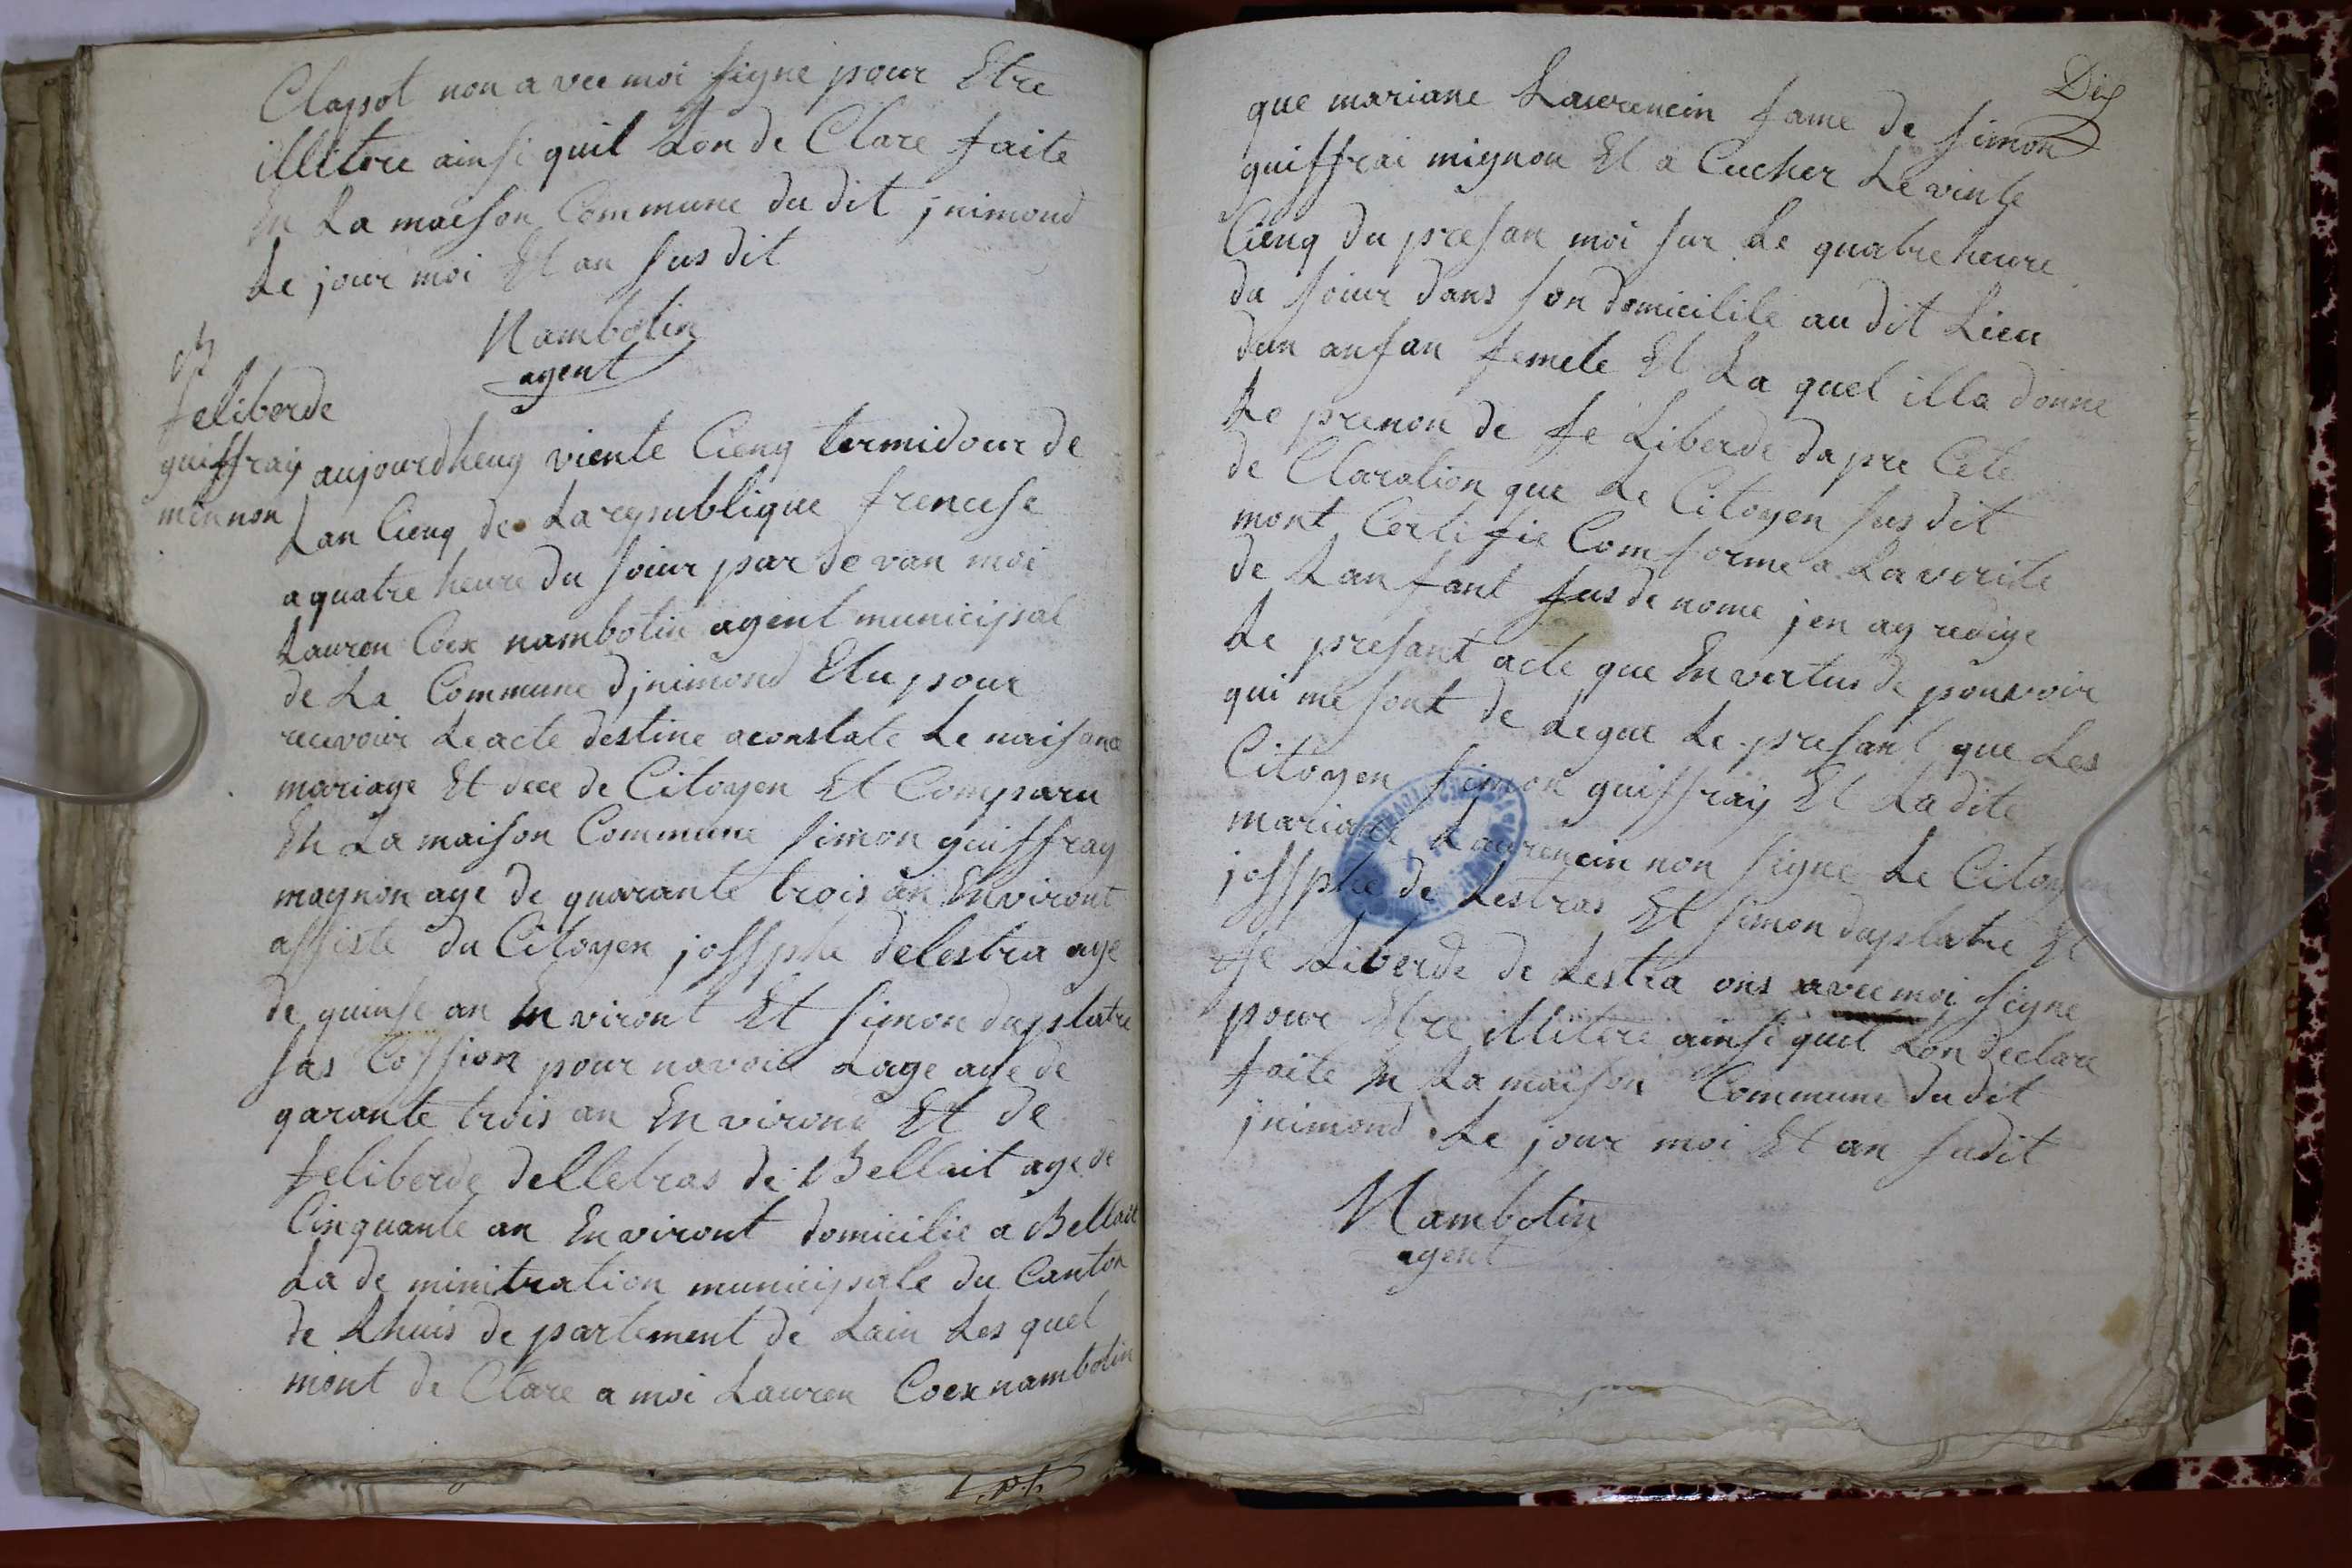 Clapot non a vec moi signe pour Etre
illitere ainsi quil Lon de Clare faite
En La maison Commune du dit jnimond
Le jour moi Et an susdit
Nambotin
agent
feliberde
guiffray
mennon
aujourdheuy viente Cienq termidour de
Lan Cienq de La republique frencese
a quatre heure du soiur par de van moi
Lauren Coex nambotin agent municipal
de La Commune djnimond Elu pour
recevoir Le acte destine a constate Le naisance
mariage Et dece de Citoyen Et Comparu
En La maison Commune simon guiffray
magnon age de quarante trois an Environt
assiste du Citoyen jossphe delestra age
de quinse an En viront Et simon duplatre
sas Cossion pour navoir Lage age de
garante trois an En viront Et de
feliberde delletras de Bellait age de
Cinquante an Environt domicilie a Bellait
La de minitration municipale du Canton
de Lhuis de partement de Lain Les quel
mont de Clare a moi Lauren Coex nambotin
Dix
que mariane Laurencin fame de simon
guiffrai mignon Et a Cucher Le vinte
Cienq du presan moi sur Le quatre heure
du soiur dans son domicilile au dit Lieu
dun ansan femele Et La quel illa donne
Le prenon de fe Liberde dapre Cete
de Claration que Le Citoyen sus dit
mont Certifie Comforme a La verite
de Lanfant sus de nome jen ay redige
Le presant acte que En vertus de pouvoir
qui me sont de Legue Le presant que Les
Citoyen simon guiffray Et La dite
mariane Laurencin non signe Le Citoyen
jossphe de Lestras Et simon duplatre Et
fe Liberde de Lestra ons avec moi signe
pour Etre illitere ainsi quil Lon declare
faite En La maison Commune du dit
jnimond Le jour moi Et an sudit
Nambotin
agent